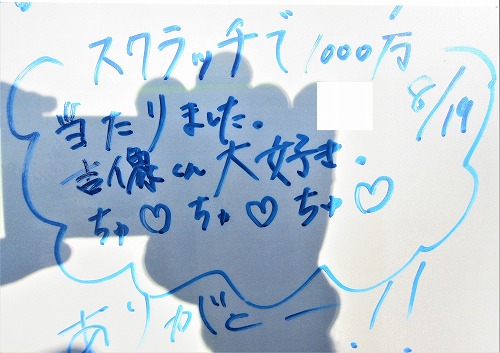 スクラッチで1000万
8/19
当たりました。
吉像くん大好き。
ちゅ♡ちゅ♡ちゅ♡
ありがとー!!